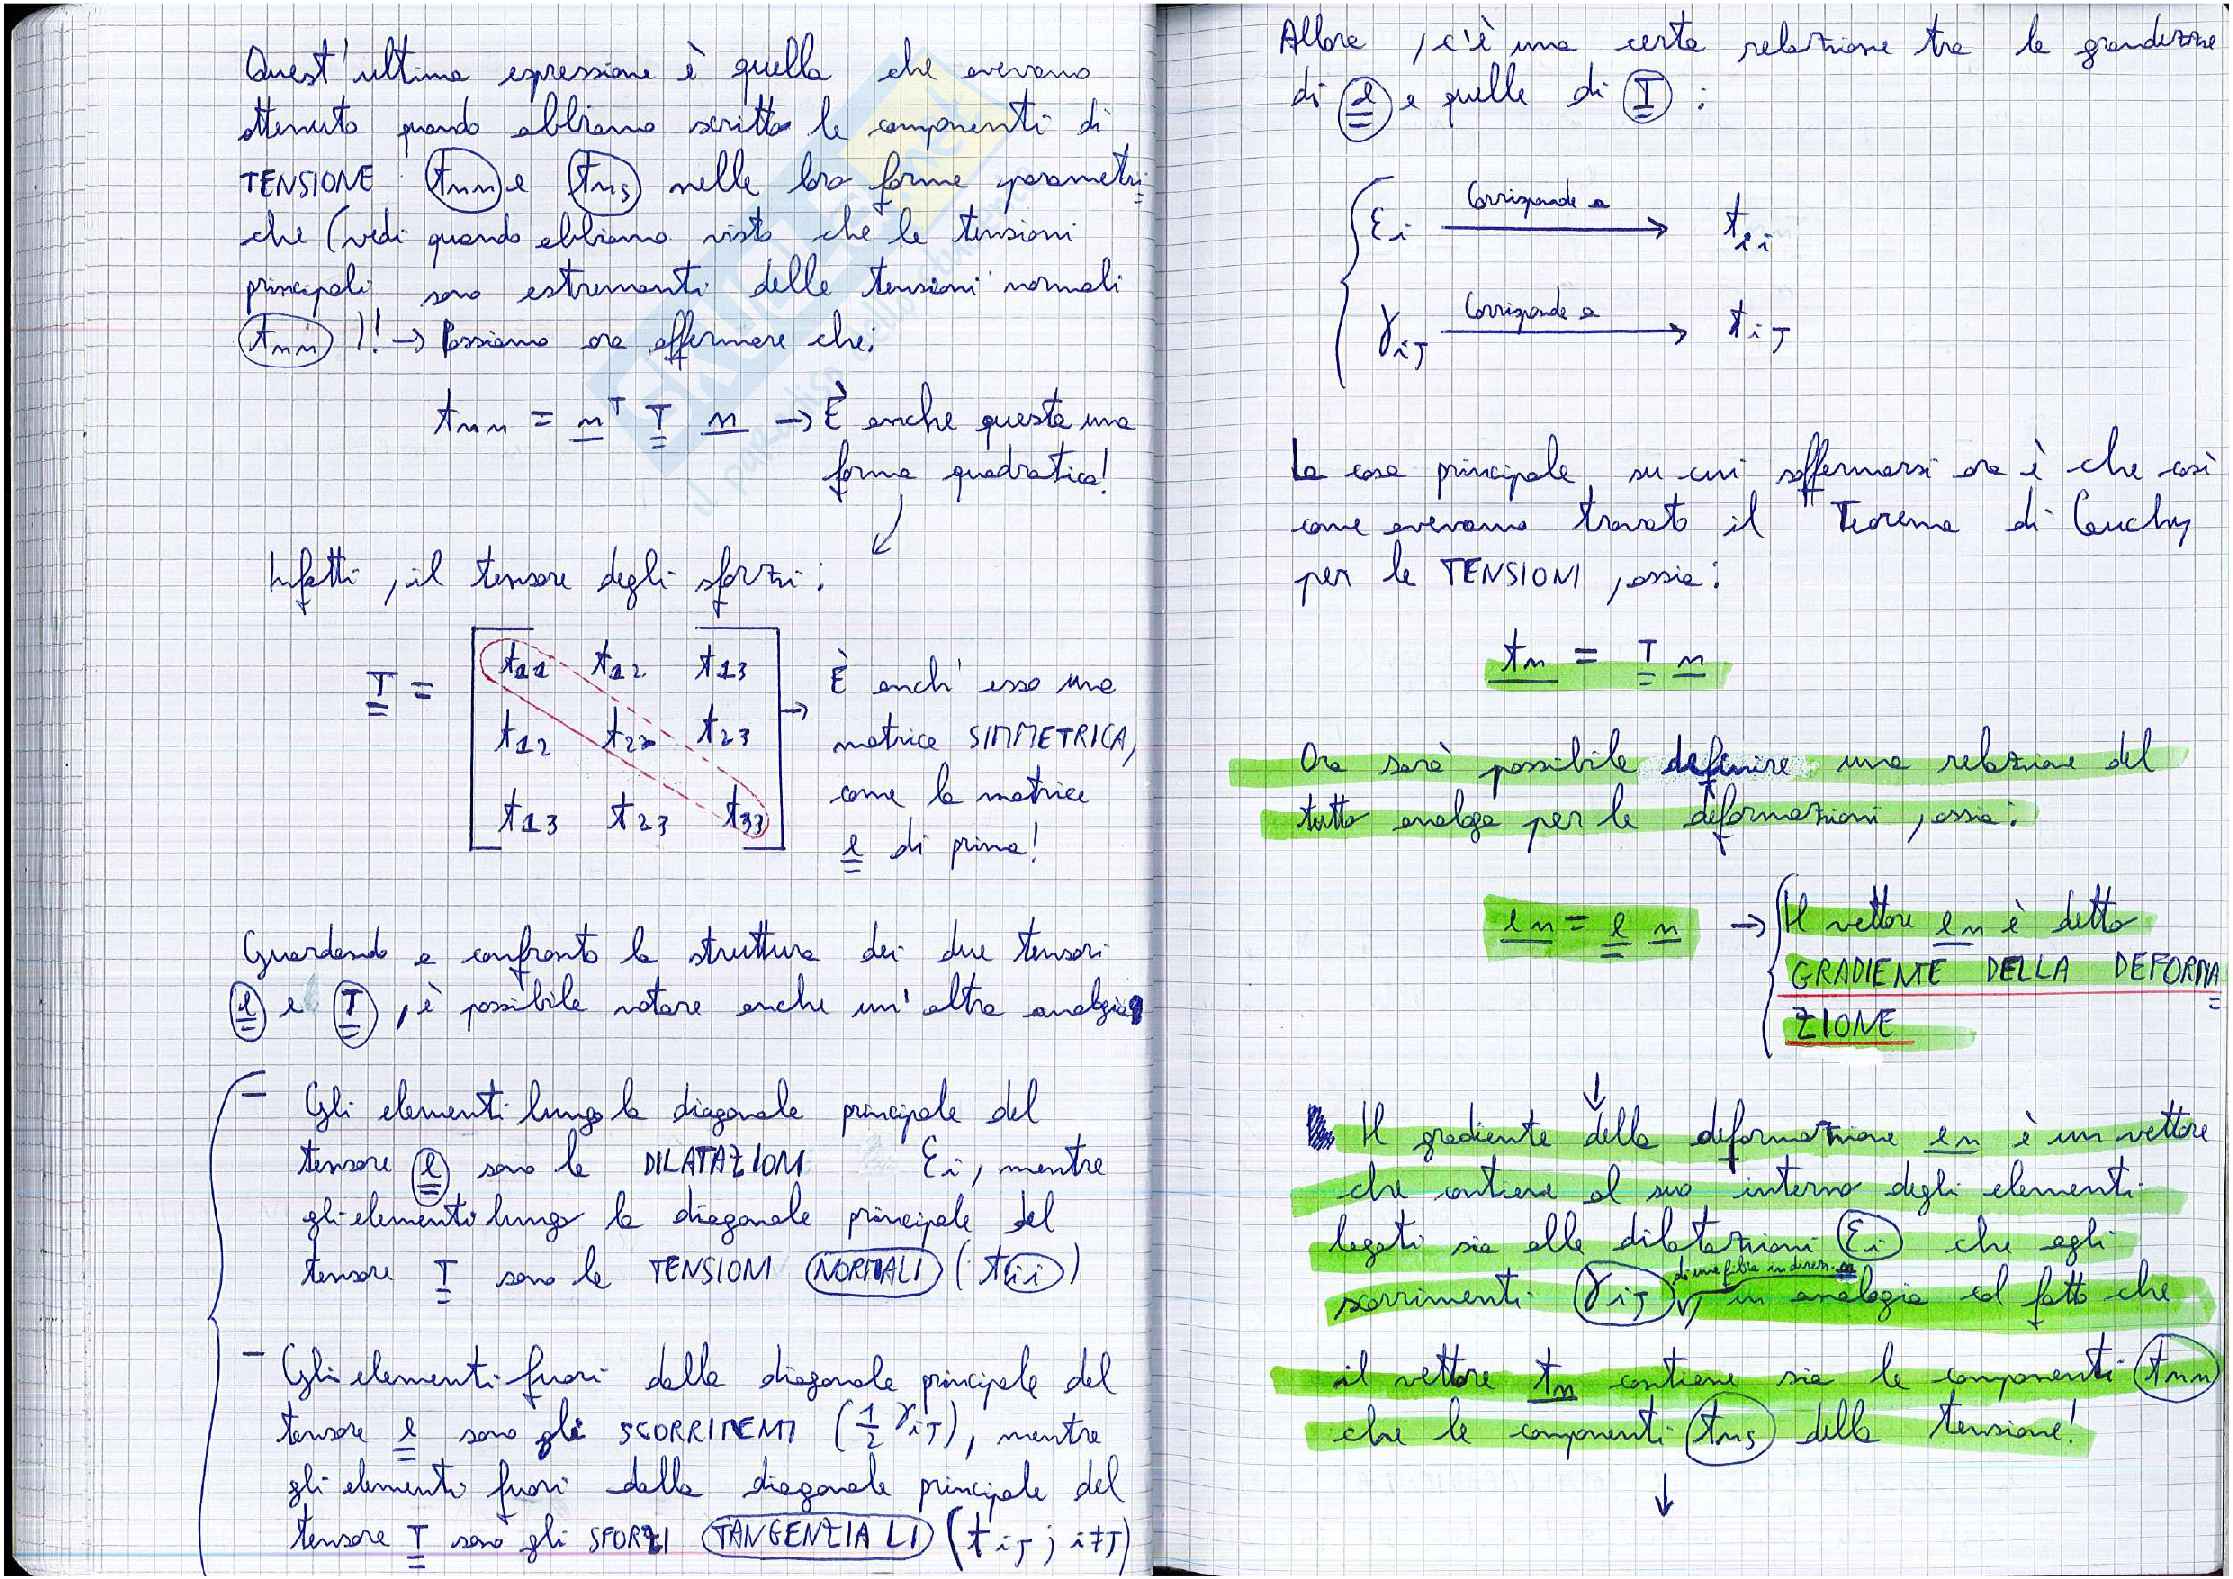 Quest'ultima espressione è quella che avevamo
ottenuto quando abbiamo scritto le componenti di
TENSIONE tnn e tns nelle loro forme parametri=
che (vedi quando abbiamo visto che le tensioni
principali sono estremanti delle tensioni normali
tnn )! → Possiamo ora affermare che:
tnn = n^T T n → È anche questa una
forma quadratica!
Infatti, il tensore degli sforzi:
T =
t11 t12 t13
t12 t22 t23
t13 t23 t33
→ È anch'esso una
matrice SIMMETRICA,
come la matrice
e di prima!
Guardando a confronto la struttura dei due tensori
e e T, è possibile notare anche un'altra analogia:
- Gli elementi lungo la diagonale principale del
tensore e sono le DILATAZIONI εi, mentre
gli elementi lungo la diagonale principale del
tensore T sono le TENSIONI NORMALI (tii)
- Gli elementi fuori dalla diagonale principale del
tensore e sono gli SCORRIMENTI (1/2 γiJ), mentre
gli elementi fuori dalla diagonale principale del
tensore T sono gli SFORZI TANGENZIALI (tiJ; i≠J)
Allora, c'è una certa relazione tra le grandezze
di e e quelle di T:
εi Corrisponde a → tii
γiJ Corrisponde a → tiJ
La cosa principale su cui soffermarsi ora è che così
come avevamo trovato il Teorema di Cauchy
per le TENSIONI, ossia:
tn = T n
Ora sarà possibile definire una relazione del
tutto analoga per le deformazioni, ossia:
en = e n → Il vettore en è detto
GRADIENTE DELLA DEFORMA=
ZIONE
↓
Il gradiente della deformazione en è un vettore
che contiene al suo interno degli elementi
legati sia alle dilatazioni εi che agli
scorrimenti γiJ di una fibra in direz. n, in analogia col fatto che
il vettore tn contiene sia le componenti tnn
che le componenti tns della tensione!
↓